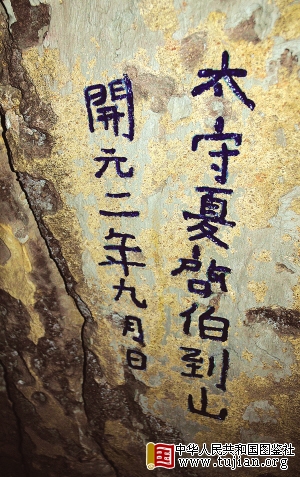 太守夏啟伯到山
開元二年九月日
中华人民共和国图鉴社
国
www.tujian.org